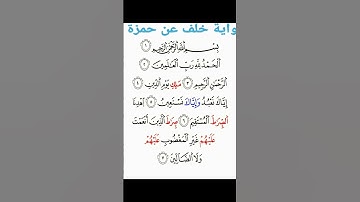 واية خلف عن حمزة
بِسْمِ ٱللَّهِ ٱلرَّحْمَٰنِ ٱلرَّحِيمِ ١
ٱلْحَمْدُ لِلَّهِ رَبِّ ٱلْعَٰلَمِينَ ٢
ٱلرَّحْمَٰنِ ٱلرَّحِيمِ ٣ مَلِكِ يَوْمِ ٱلدِّينِ ٤
إِيَّاكَ نَعْبُدُ وَإِيَّاكَ نَسْتَعِينُ ٥ ٱهْدِنَا
ٱلصِّرَٰطَ ٱلْمُسْتَقِيمَ ٦ صِرَٰطَ ٱلَّذِينَ أَنْعَمْتَ
عَلَيْهُمْ غَيْرِ ٱلْمَغْضُوبِ عَلَيْهُمْ
وَلَا ٱلضَّآلِّينَ